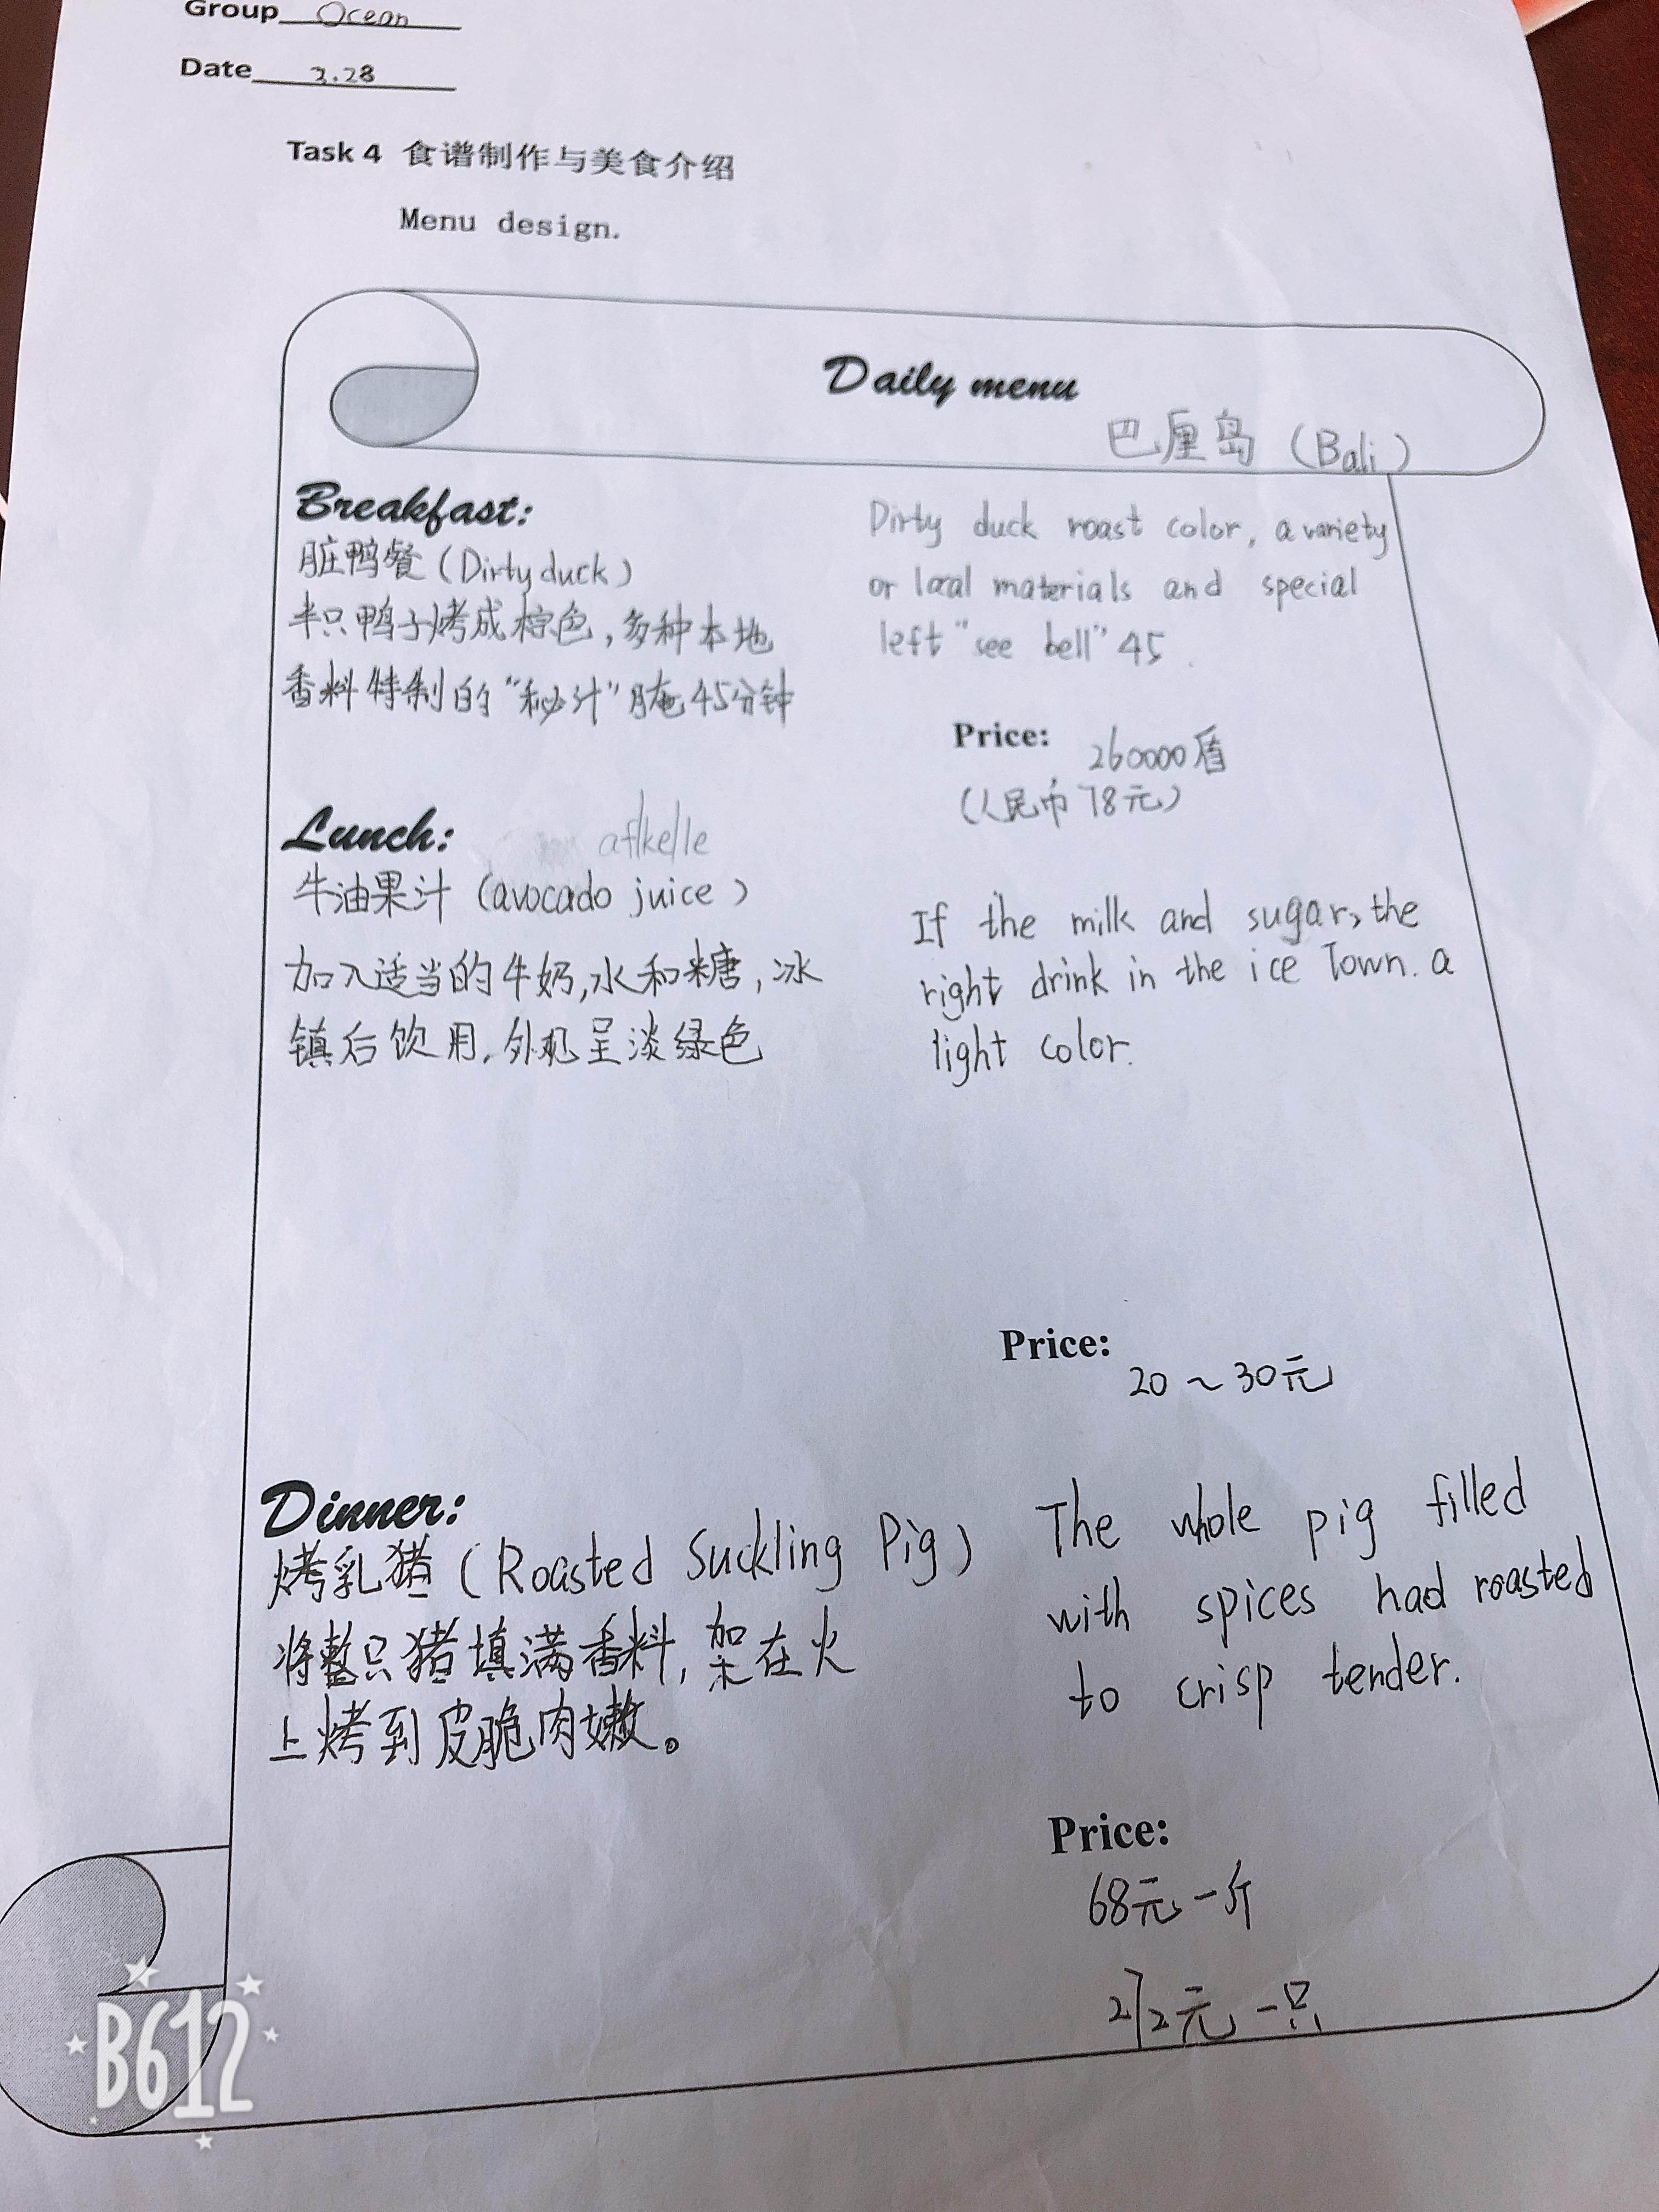 Group Ocean
Date 3.28
Task 4 食谱制作与美食介绍
Menu design.
Daily menu
巴厘岛 (Bali)
Breakfast:
脏鸭餐 (Dirty duck)
半只鸭子烤成棕色,多种本地
香料特制的“秘汁”腌45分钟
Dirty duck roast color, a variety
or local materials and special
left "see bell" 45
Price: 260000盾
(人民币78元)
Lunch:
牛油果汁 (avocado juice)
加入适当的牛奶,水和糖,冰
镇后饮用,外观呈淡绿色
If the milk and sugar, the
right drink in the ice Town. a
light color.
Price:
20～30元
Dinner:
烤乳猪 (Roasted Suckling Pig)
将整只猪填满香料,架在火
上烤到皮脆肉嫩。
The whole pig filled
with spices had roasted
to crisp tender.
Price:
68元一斤
272元一只
B612